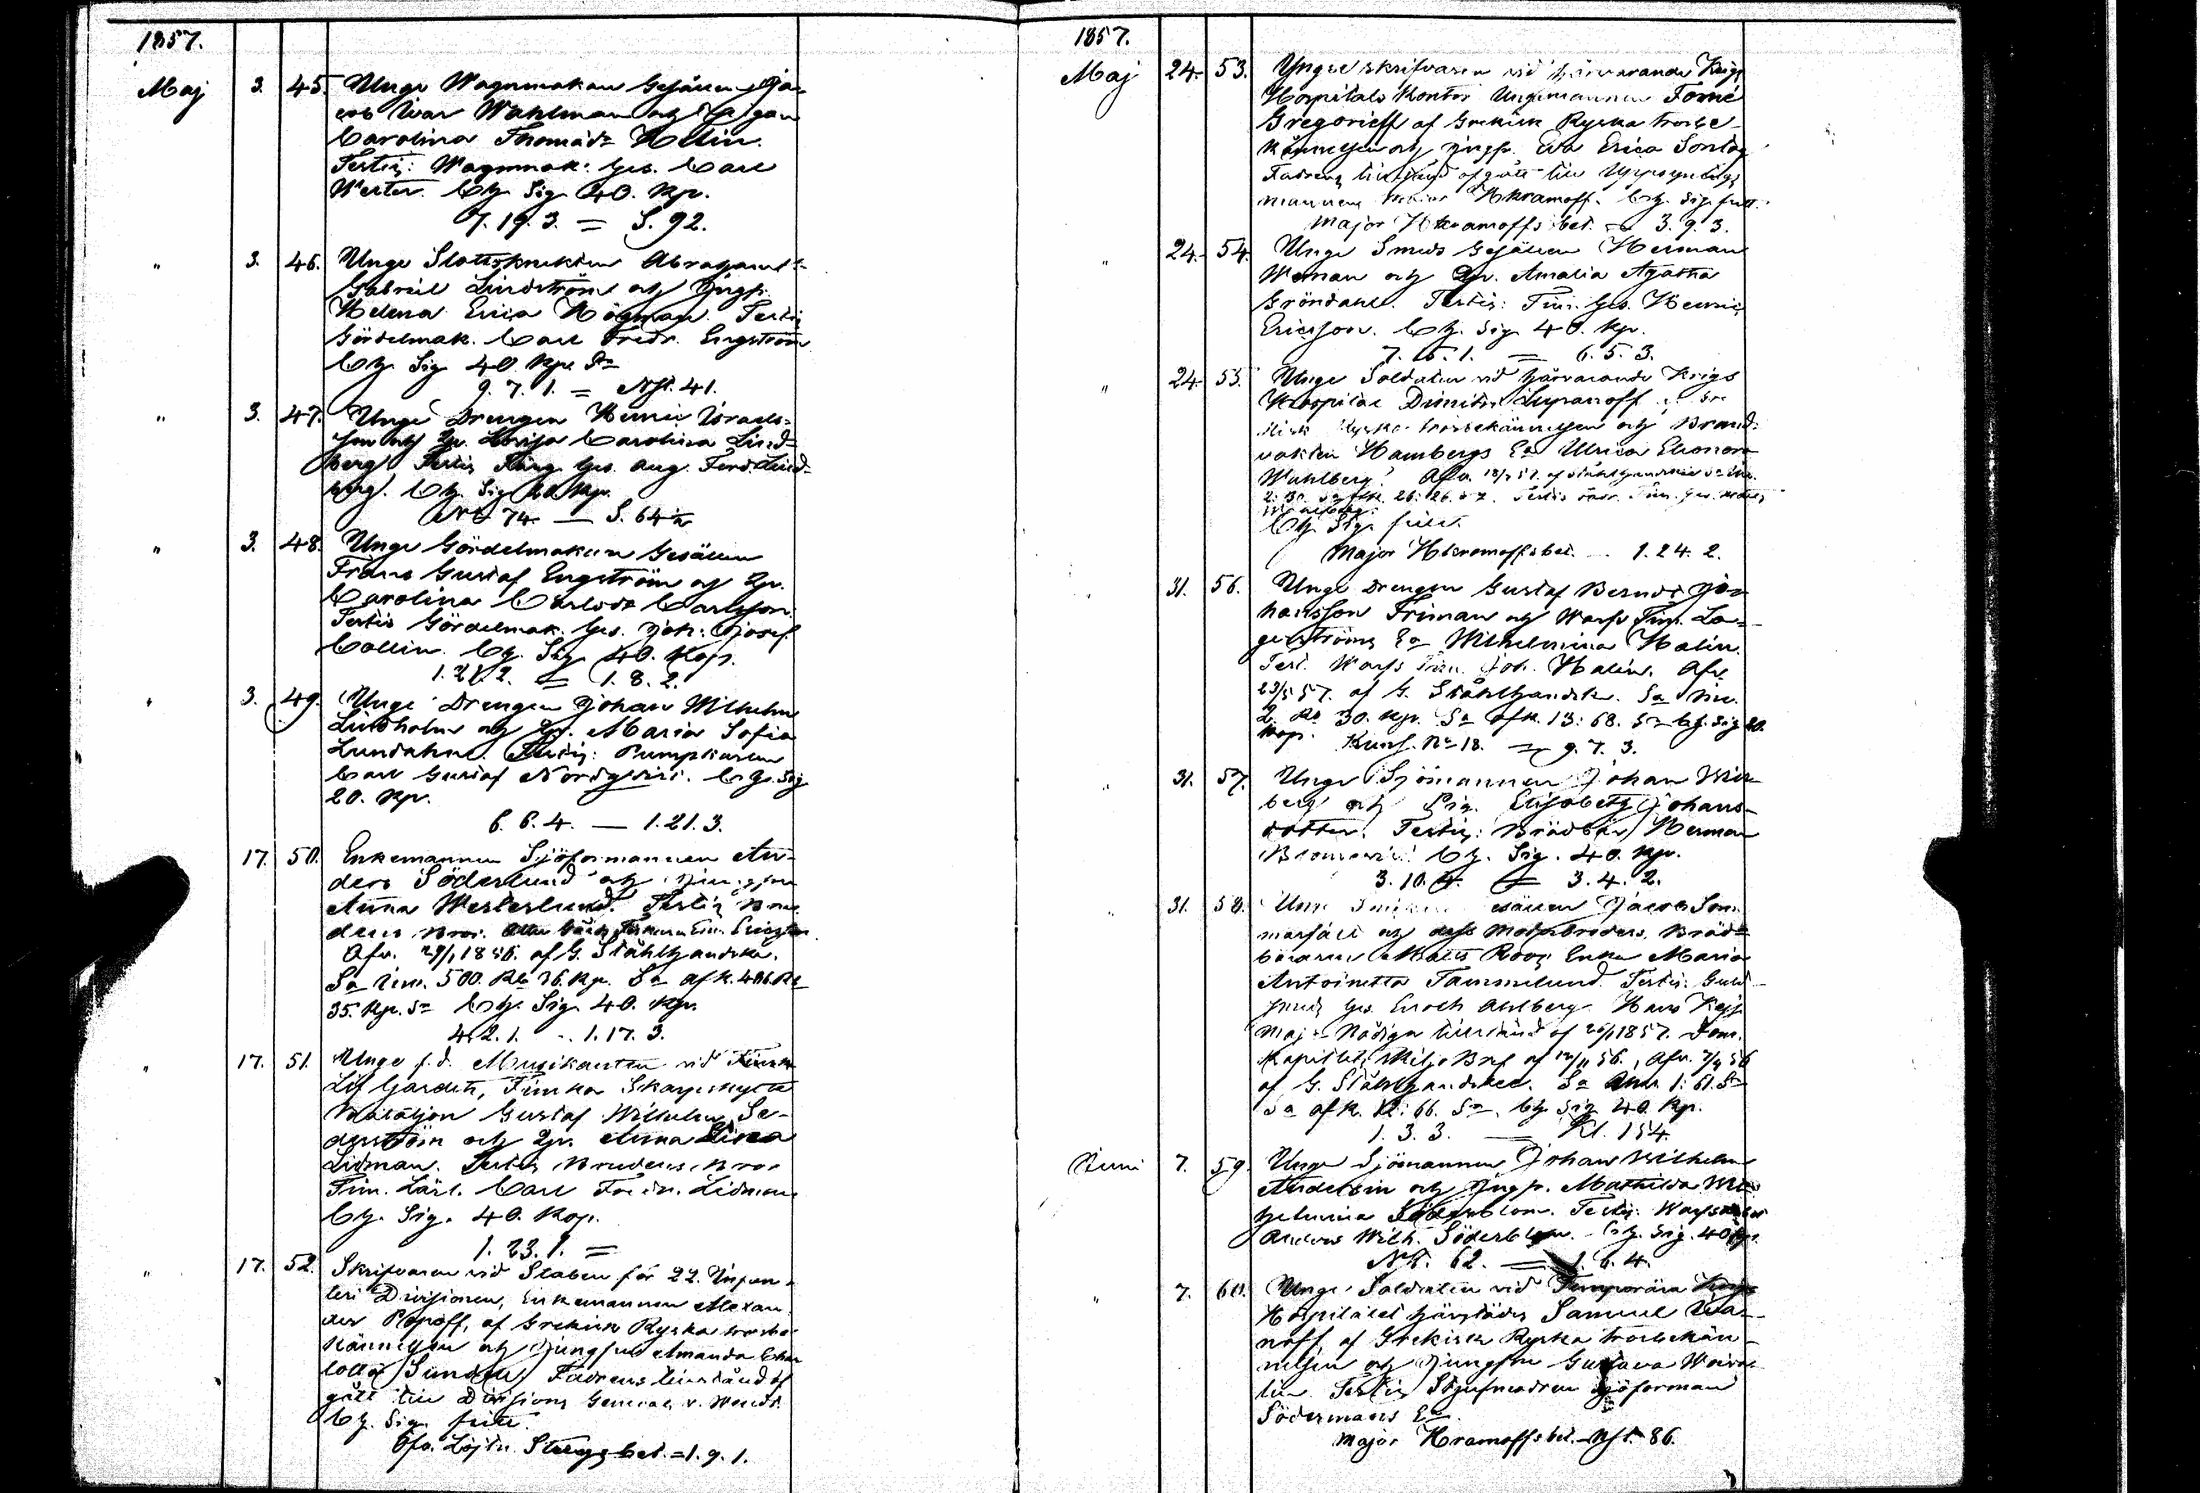 1857.
Maj 3. 45. Unge Wagnmakare Gesällen Ja-
cob Iwar Wahlman och Pigan
Carolina Thomasdr Helin.
Testis: Wagnmak: Ges. Carl
Wester. Ch. Sig. 40. Kp.
7. 19. 3. = S. 92.
" 3. 46. Unge Slottsknekten Abraham
Gabriel Lindström och Jungf.
Helena Erica Högman. Testis
Gördelmak. Carl Fredr. Engström
Ch. Sig 40 Kp. Sr
9. 7. 1. = Nst. 41.
" 3. 47. Unge Drengen Henric Israels-
son och Pig. Lovisa Carolina Lind-
berg. Testis Färg. Ges. Aug. Ferd. Lind-
berg. Ch. Sig 20 Kp.
74. — S. 64
" 3. 48. Unge Gördelmakare Gesällen
Frans Gustaf Engström och Pig.
Carolina Carlsdr Carlsson.
Testis Gördelmak. Ges. Joh: Josef
Collin. Ch. Sig. 40. Kop.
1. 21. 2. = 1. 8. 2.
" 3. 49. Unge Drengen Johan Wilhelm
Lindholm och Pig. Maria Sofia
Lundahn. Testis: Pumpkaren
Carl Gustaf Nordqvist. Ch. Sig
20. Kp.
6. 6. 4. — 1. 21. 3.
17. 50. Enkemannen Sjöformannen An-
ders Söderlund och Jungfru
Anna Westerlund. Testis Bru-
dens Bror.
Afv. 29/1 1856. af G. Stålhandske.
Sa Inv. 500. Rb 36. Kp. Sa afk. 486. Rb
35. Kp. Sr Ch. Sig. 40. Kp.
4. 2. 1. - 1. 17. 3.
" 17. 51. Unge f.d. Musikanten vid Finska
Lif Gardets, Finska Skarpskytte
Bataljon Gustaf Wilhelm Se-
derström och Pig. Anna Lisa
Lidman. Testis Brudens Bror
Tim. Lärl. Carl Fredr. Lidman
Ch. Sig. 40. Kop.
1. 23. 1. =
" 17. 52. Skrifvaren vid Staben för 22. Infan-
teri Divisionen, Enkemannen Alexan-
der Popoff, af Grekisk Ryska trosbe-
kännelsen och Jungfru Amanda Char-
lotta Sundén. Fadrens tillstånd af-
gått till Divisions General v. Wendt.
Ch. Sig. fritt.
Öfv. Löjtn. bet. = 1. 9. 1.
1857.
Maj 24. 53. Yngre skrifvaren vid härvarande Krigs
Hospitals Kontor Ungmannen Fomé
Gregorieff af Grekisk Ryska trosbe-
kännelsen och Jungfr. Eva Erica Sontag
Fadrens tillstånd afgått till Uppsynings
mannen Major Hkramoff. Ch. Sig. fritt.
Major Hkramoffs bet. — 3. 9. 3.
" 24. 54. Unge Smeds Gesällen Herman
Weman och Pig. Amalia Agatha
Gröndahl. Testis: Tim. Ges. Henric
Ericsson. Ch. Sig. 40. Kp.
7. 5. 1. = 6. 5. 3.
" 24. 55. Unge Soldaten vid härvarande Krigs
Hospital Dimitri Lupanoff af Gre-
kisk Ryska trosbekännelsen och Brand-
vakten Hambergs Ea Ulrica Eleonora
Wahlberg. Afv. af Stålhandske Sa Inv.
Ch. Sig. fritt.
Major Hkramoffs bet. — 1. 24. 2.
" 31. 56. Unge Drengen Gustaf Berndt Jo-
hansson Friman och Warfs Tim. La-
gerströms Ea Wilhelmina Malin.
Test. Warfs Tim. Joh. Malin. Afv.
23/5 57. af G. Stålhandske. Sa Inv.
2. Rb 30. Kp. Sa afk. 13: 68. Sr Ch. Sig 20.
Kop. Kunf. No 18. — 9. 7. 3.
" 31. 57. Unge Sjömannen Johan Wik-
berg och Pig. Elisabeth Johans-
dotter. Testis: Brödbär. Herman
Ch. Sig. 40. Kp.
3. 10. 4. = 3. 4. 2.
" 31. 58. Unge Gesällen Jacob Som-
marfält och dess Moderbroders, Bröd-
bäraren Matts Roos Enka Maria
Antoinetta Tammelund. Testis: Guld-
smeds Ges. Enoch Ahlberg. Hans Kejs.
Maj:s Nådiga tillstånd af 1857. Dom-
Kapitlets Skiljo Bref af 12/11 56., Afv. 7/4 56
af G. Stålhandske. Sa Inv. 1: 61. Sr
Sa afk. 12: 66. Sr Ch. Sig. 40. Kp.
1. 3. 3. — Kl. 154.
Juni 7. 59. Unge Sjömannen Johan Wilhelm
Andersin och Jungf. Mathilda Wil-
helmina Söderblom. Testis: Warfs
Anders Wilh. Söderblom. Ch. Sig. 40 Kp.
Nst. 62. — 1. 6. 4.
" 7. 60. Unge Soldaten vid Temporära Krigs
Hospitalet härstädes Samuel Iwa-
noff, af Grekisk Ryska trosbekän-
nelsen och Jungfru Gustava
Testis Styfmodren Sjöforman
Södermans Ea.
Major Hramoffs bet. — Nst. 86.